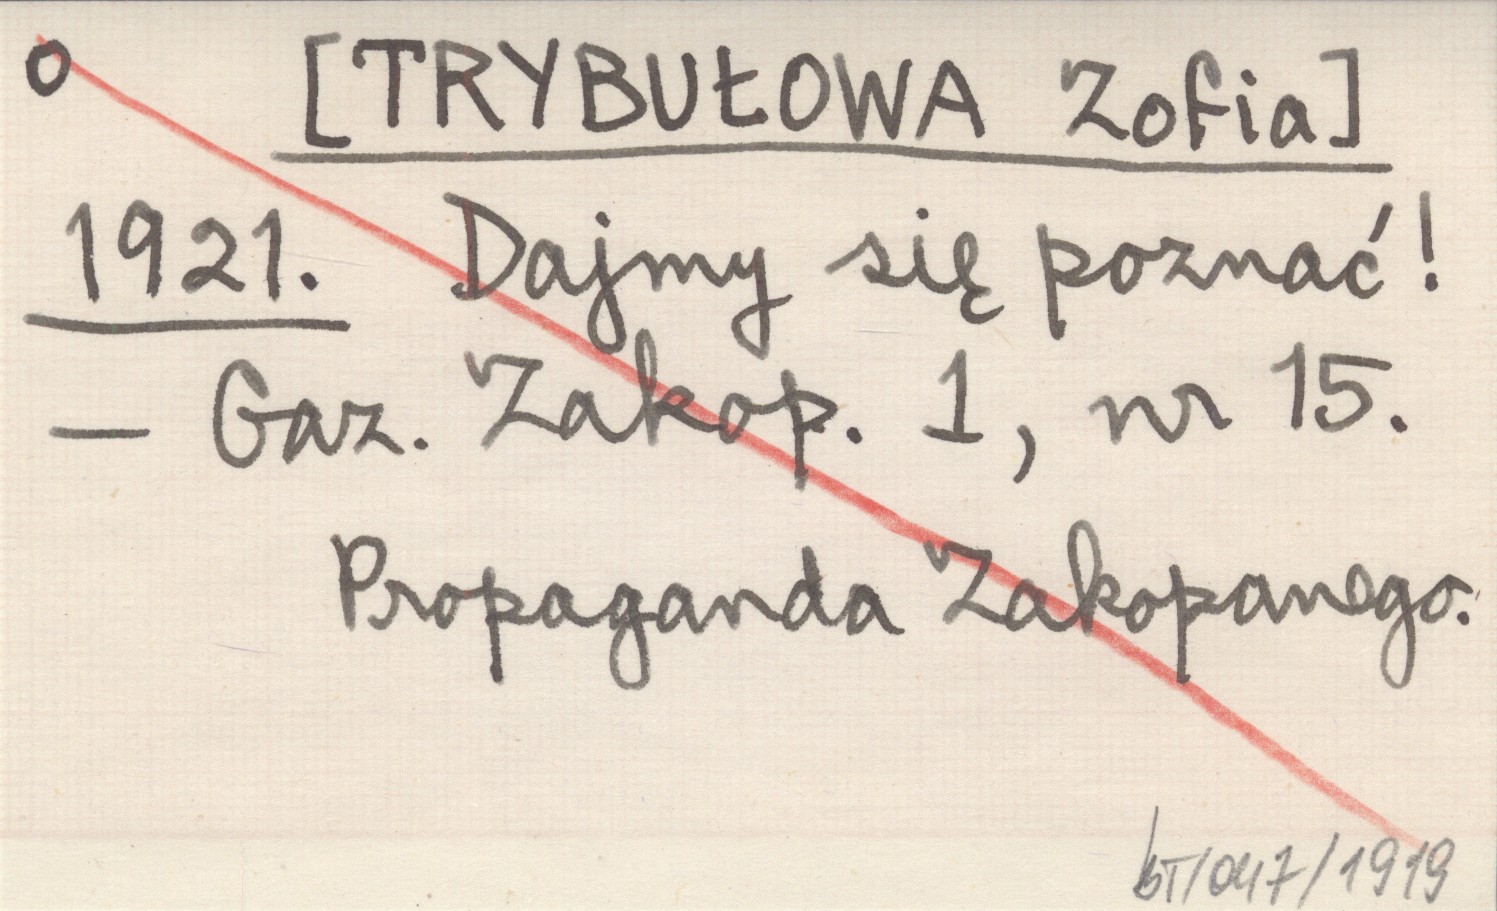 o [TRYBUŁOWA Zofia]
1921. Dajmy się poznać!
— Gaz. Zakop. 1, nr 15.
Propaganda Zakopanego.
bT/047/1919